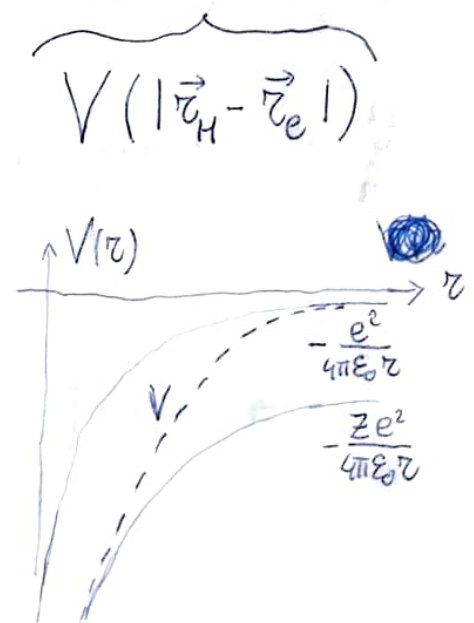 V(|r⃗_H - r⃗_e|)
V(r)
r
- e²/4πε₀r
V
- Ze²/4πε₀r